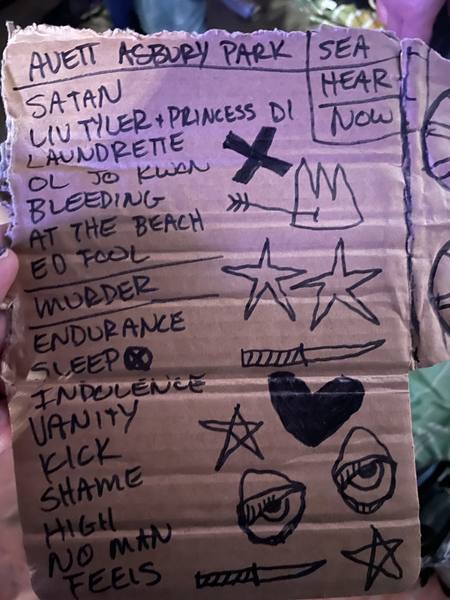 AVETT ASBURY PARK
SEA
HEAR
NOW
SATAN
LIV TYLER + PRINCESS DI
LAUNDRETTE
OL JO KWON
BLEEDING
AT THE BEACH
ED FOOL
MURDER
ENDURANCE
SLEEP
INDOLENCE
VANITY
KICK
SHAME
HIGH
NO MAN
FEELS